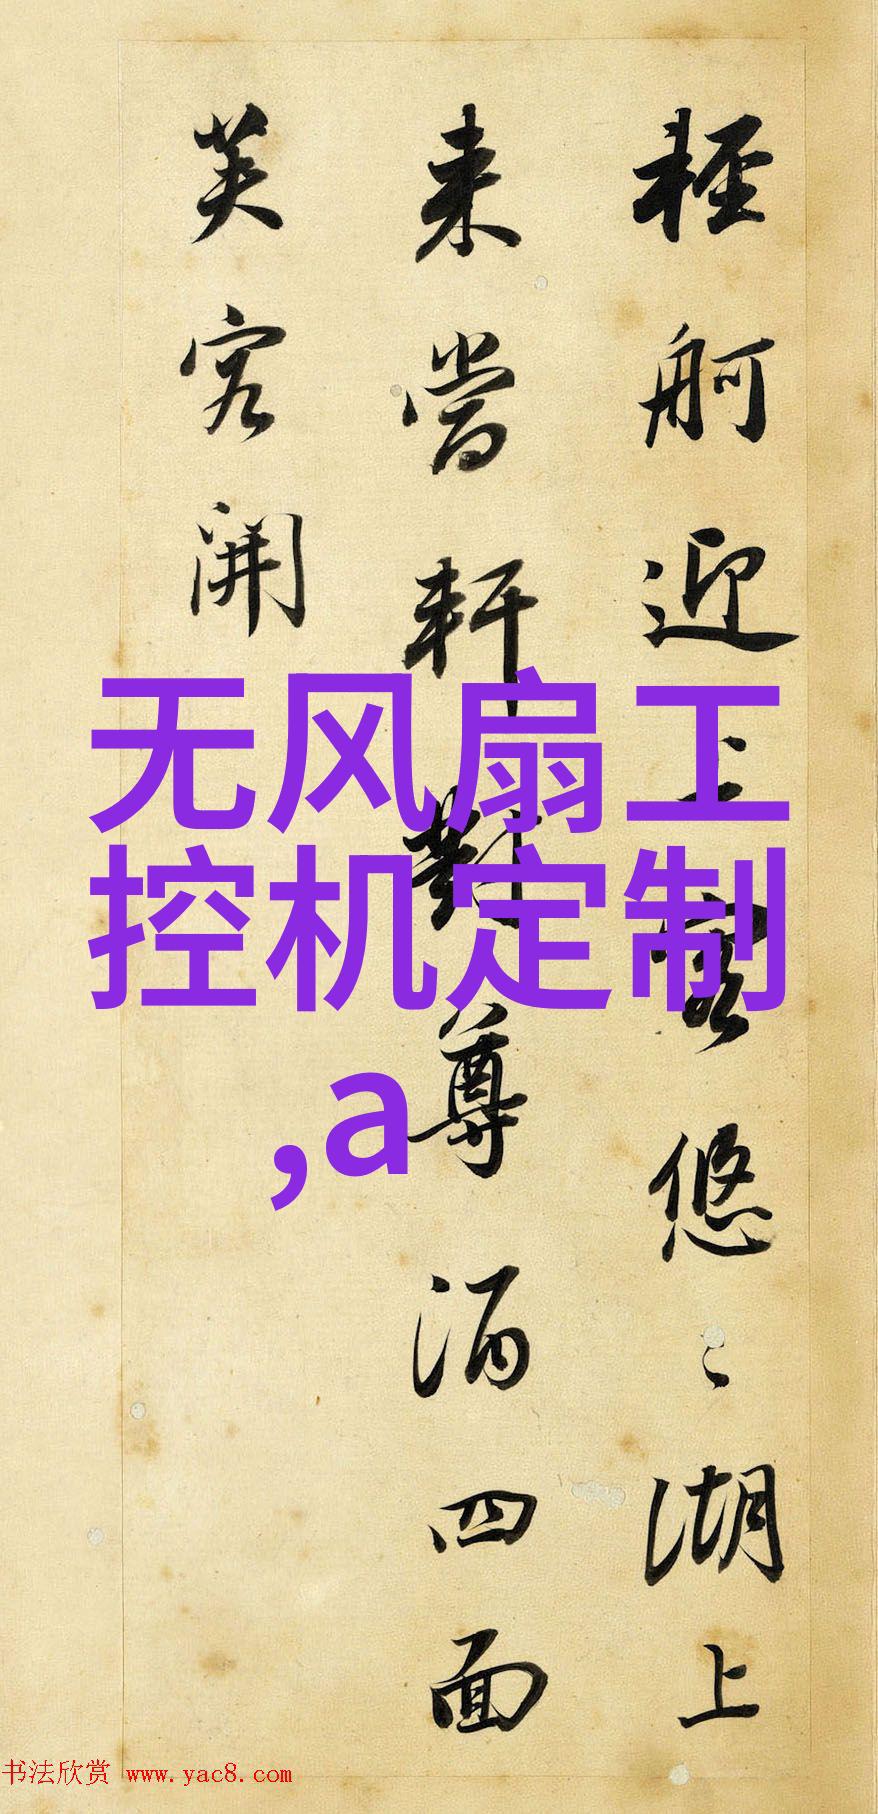 輕舸迎上客悠〻湖上
来當軒對尊酒四面
芙容開
无风扇工
控机定制
,a
书法欣赏 www.yac8.com